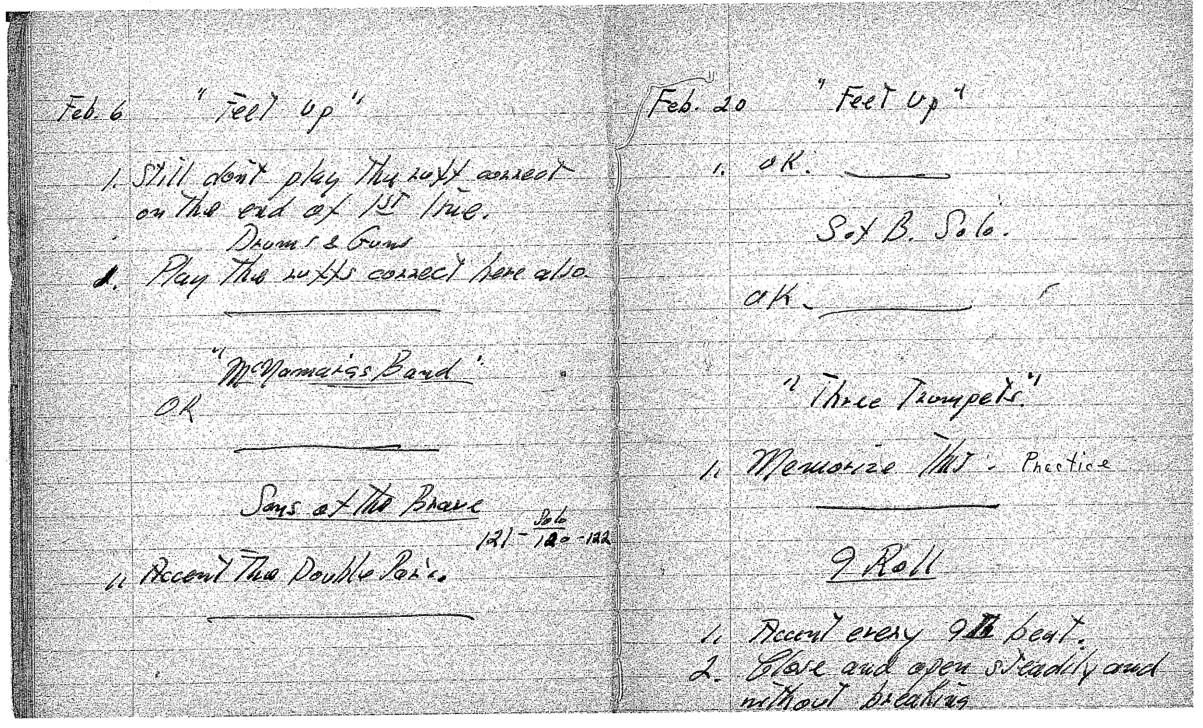 Feb. 6 "Feet Up"
1. Still don't play the ruff correct
on the end of 1st line.
Drums & Guns
1. Play the ruffs correct here also.
"McNamara's Band"
OK
Sons of the Brave
Solo
121 - 120 - 122
1. Accent The Double Para.
Feb. 20 "Feet Up"
1. OK.
Sof B. Solo.
OK.
"Three Trumpets."
1. Memorize This. Practice
9 Roll
1. Accent every 9th beat.
2. Close and open steadily and
without breaking